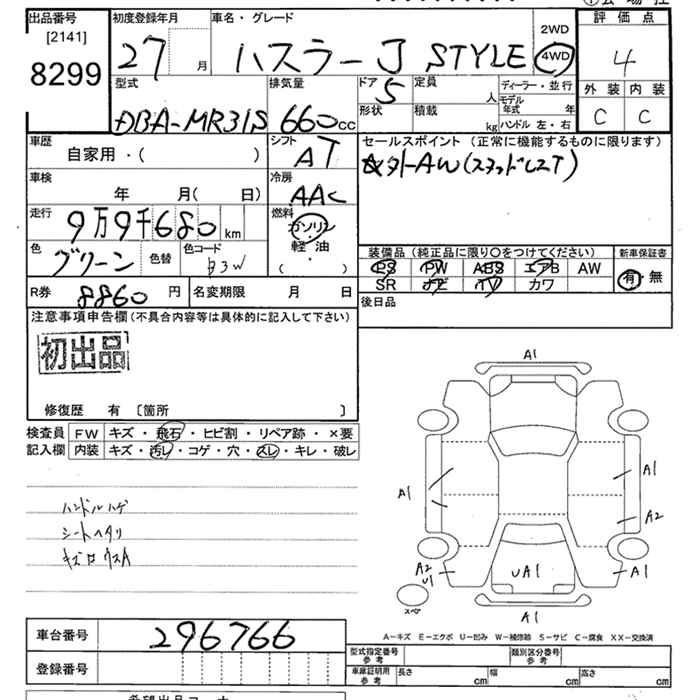 出品番号 初度登録年月 車名・グレード 2WD 評価点
[2141]
8299 27 月 ハスラー J STYLE 4WD 4
型式 排気量 ドア 5 定員 人 ディーラー・並行 モデル年式 年 外装 内装
DBA-MR31S 660cc 形状 積載 kg ハンドル 左・右 C C
車歴 シフト セールスポイント (正常に機能するものに限ります)
自家用・( ) AT ☆外AW(スタッドレスT)
車検 冷房
年 月( 日) AAC
走行 9万9千680km 燃料 ガソリン
軽・油
( ・ )
色 グリーン 色替 色コード
装備品 (純正品に限り○をつけてください) 新車保証書
PS PW ABS エアB AW 有・無
SR ナビ TV カワ
R券 8860円 名変期限 月 日 後日品
注意事項申告欄(不具合内容等は具体的に記入して下さい)
初出品
修復歴 有 〔箇所 〕
検査員 FW キズ・飛石・ヒビ割・リペア跡・×要
記入欄 内装 キズ・汚レ・コゲ・穴・スレ・キレ・破レ
ハンドルハゲ
シートヘタリ
A1
A1
A1
A2
A2
U1
UA1
A1
スペア
A1
A-キズ E-エクボ U-凹み W-補修跡 S-サビ C-腐食 XX-交換済
車台番号 296766
登録番号
型式指定番号 参考 類別区分番号 参考
車庫証明用 参考 長さ cm 幅 cm 高さ cm